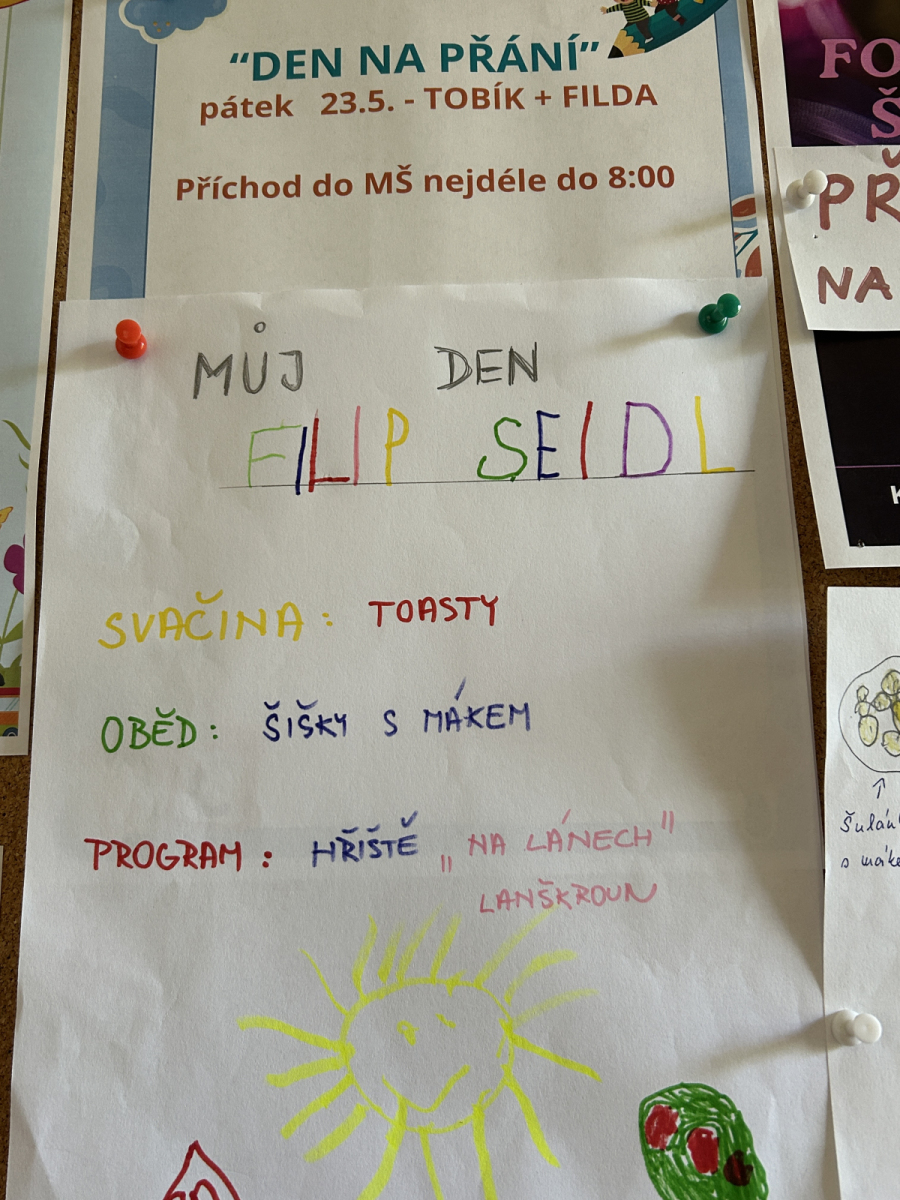 “DEN NA PŘÁNÍ”
pátek 23.5. - TOBÍK + FILDA
Příchod do MŠ nejdéle do 8:00
MŮJ DEN
FILIP SEIDL
SVAČINA: TOASTY
OBĚD: ŠIŠKY S MÁKEM
PROGRAM: HŘIŠTĚ „NA LÁNECH”
LANŠKROUN
FO
Š
PŘ
NA
K